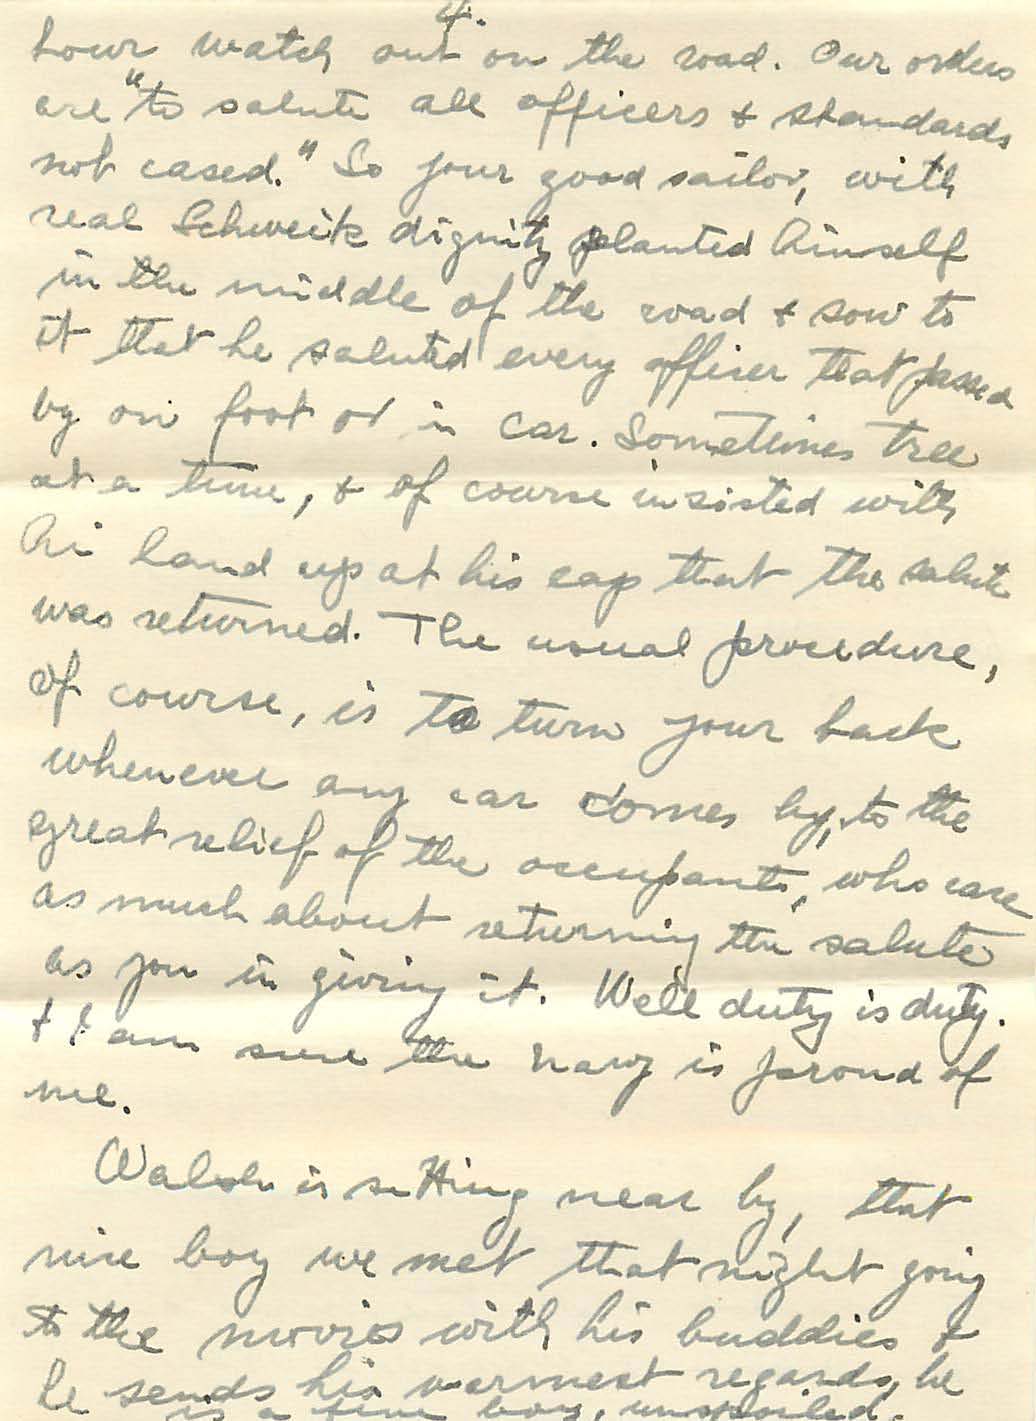 4.
hour watch out on the road. Our orders
are "to salute all officers & standards
not cased." So your good sailor, with
real Schweik dignity planted himself
in the middle of the road & sow to
it that he saluted every officer that passed
by on foot or in car. Sometimes tree
at a time, & of course insisted with
hi hand up at his cap that the salute
was returned. The usual procedure,
of course, is to turn your back
whenever any car comes by, to the
great relief of the occupants, who care
as much about returning the salute
as you in giving it. Well duty is duty.
& I am sure the navy is proud of
me.
Walsh is sitting near by, that
nice boy we met that night going
to the movies with his buddies &
he sends his warmest regards, he
is a fine boy, unspoiled.